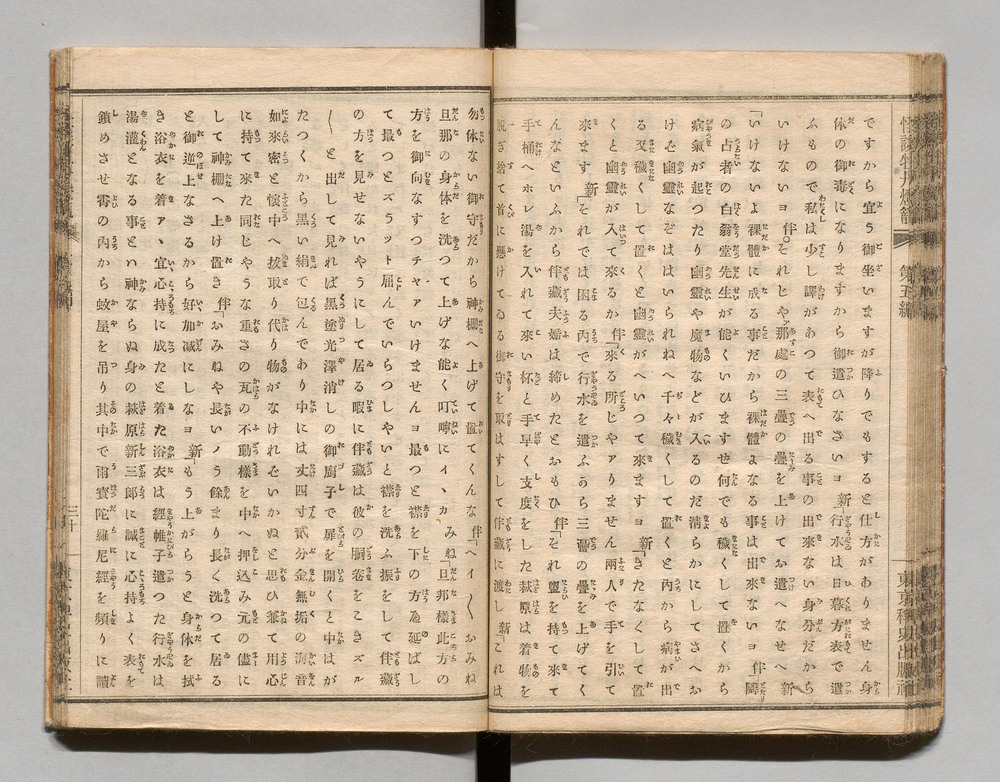 怪談牡丹燈籠 第五編
東京稗史出版社
ですから宜う御坐いますが降りでもすると仕方がありません身
体の御毒になりますから御遣ひなさいヨ新「行水は日暮方表で遣
ふもので私は少し譯があつて表へ出る事の出來ない身分だから
いけないヨ伴「それじやア那處の三疊の疊を上けてお遣へなせへ新
「いけないよ裸體に成る事だから裸體になる事は出來ないヨ伴「隣
の占者の白翁堂先生が能くいひますぜ何でも穢くして置くから
病氣が起つたり幽靈や魔物などが入るのだ淸らかにしてさへお
けは幽靈なぞははいられねへ千々穢くして置くと內から病が出
る又穢くして置くと幽靈がへいつて來ますヨ新「穢たなくして置
くと幽靈が入て來るか伴「來る所じやアありません兩人で手を引いて
來ます新「それでは困る內で行水を遣ふから三疊の疊を上げてく
んなといふから伴藏夫婦は締めたとおもひ伴「それ盥を持て來て
手桶へホレ湯を入れて來い抔と手早く支度をした萩原は着物を
脫ぎ捨て首に懸けてゐる御守を取はすして伴藏に渡し新「これは
勿体ない御守だから神棚へ上げて置てくんな伴「ヘイ〳〵おみね
旦那の身体を洗つて上げな能く叮嚀にイヽカみね「旦那樣此方の
方を御向なすつチヤアいけませんヨ最つと襟を下の方へ延ばし
て最つとズラツト屈んでいらつしやいと襟を洗ふ振をして伴藏
の方を見せないやうにして居る暇に伴藏は彼の胴卷をこきズル
〳〵と出して見れば黑塗光澤消しの御廚子で扉を開くと中はが
たつくから黑い絹で包んであり中には丈四寸貳分金無垢の海音
如來密と懷中へ拔取り代り物がなけれをいかぬと思ひ兼て用心
に持て來た同じやうな重さの瓦の不動樣を中へ押込み元の儘に
して神棚へ上け置き伴「おみねや長いノウ餘まり長く洗つて居る
と御逆上なさるから好加減にしなヨ新「もう上がらうと身体を拭
き浴衣を着アヽ宜心持に成たと着た浴衣は經帷子遣つた行水は
湯灌となる事とハ神ならぬ身の萩原新三郎は誠に心持よく表を
鎖めさせ霄の內から蚊屋を吊り其中で雨寳陀羅尼經を頻りに讀
三十